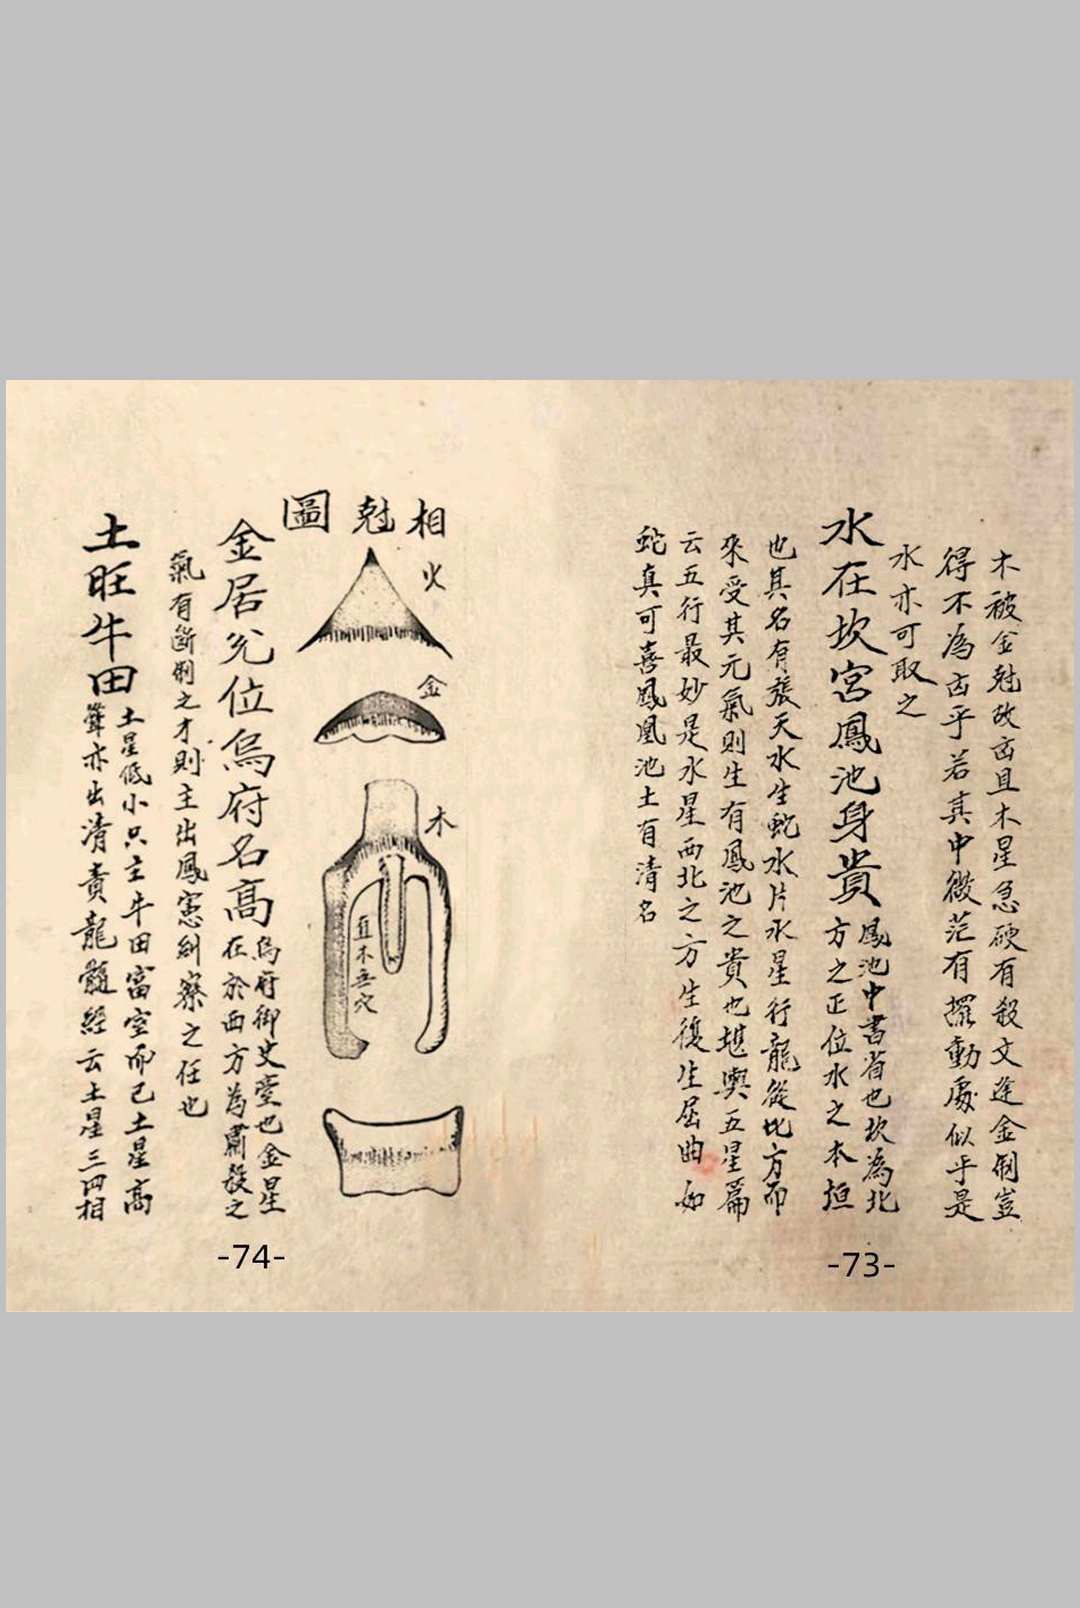 木被金尅故凶且木星急硬有殺文逢金制豈
得不為凶乎若其中微茫有擺動處似乎是
水亦可取之
水在坎宮鳳池身貴
鳳池中書省也坎為北
方之正位水之本垣
也其名有漲天水生蛇水片水星行龍從北方而
來受其元氣則生有鳳池之貴也堪輿五星篇
云五行最妙是水星西北之方生復生屈曲如
蛇真可喜鳳凰池土有清名
-73-
相尅圖
火
金
木
直木無穴
金居兌位烏府名高
烏府御史臺也金星
在於西方為肅殺之
氣有斷制之才則主出風憲糾察之任也
土旺牛田
土星低小只主牛田富室而已土星高
聳亦出清貴龍髓經云土星三四相
-74-